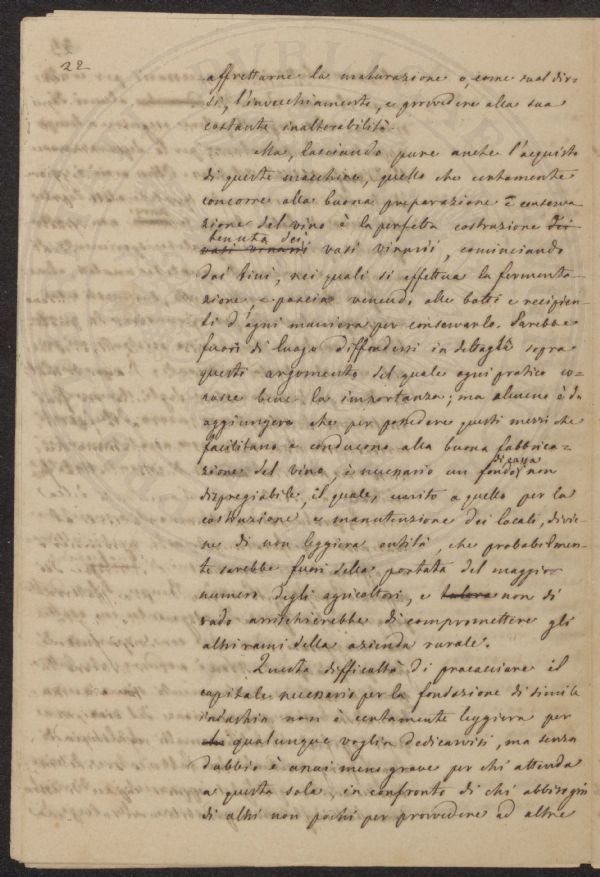 22
affrettarne la maturazione o, come suol dir-
si, l'invecchiamento, e provvedere alla sua
costante inalterabilità.
Ma, lasciando pure anche l'acquisto
di queste macchine, quello che certamente
concorre alla buona preparazione e conserva-
zione del vino è la perfetta costruzione dei
tenuta dei
vasi vinarii vasi vinarii, cominciando
dai tini, nei quali si effettua la fermenta-
zione, e poscia venendo alle botti e recipien-
ti d'ogni maniera per conservarlo. Sarebbe
fuori di luogo diffondersi in dettagli sopra
questo argomento del quale ogni pratico co-
nosce bene la importanza; ma almeno è da
aggiungere che per possedere questi mezzi che
facilitano e conducono alla buona fabbrica-
di cassa
zione del vino, è necessario un fondo non
dispregiabile, il quale, unito a quello per la
costruzione e manutenzione dei locali, divie-
ne di non leggiera entità, che probabilmen-
te sarebbe fuori della portata del maggior
numero degli agricoltori, e talora non di
rado arrischierebbe di compromettere gli
altri rami della azienda rurale.
Questa difficoltà di procacciare il
capitale necessario per la fondazione di simile
industria non è certamente leggiera per
qualunque voglia dedicarvisi, ma senza
dubbio è assai meno grave per chi attenda
a questa sola, in confronto di chi abbisogni
di altri non pochi per provvedere ad altre